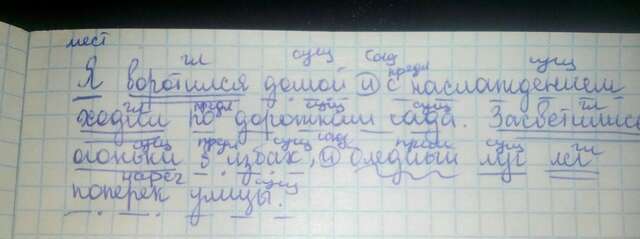 мест гл сущ союз предл сущ
Я воротился домой и с наслаждением
гл предл сущ сущ гл
ходил по дорожкам сада. Засветились
сущ предл сущ союз прил сущ гл
огоньки в избах, и бледный луг лёг
нареч сущ
поперёк улицы.